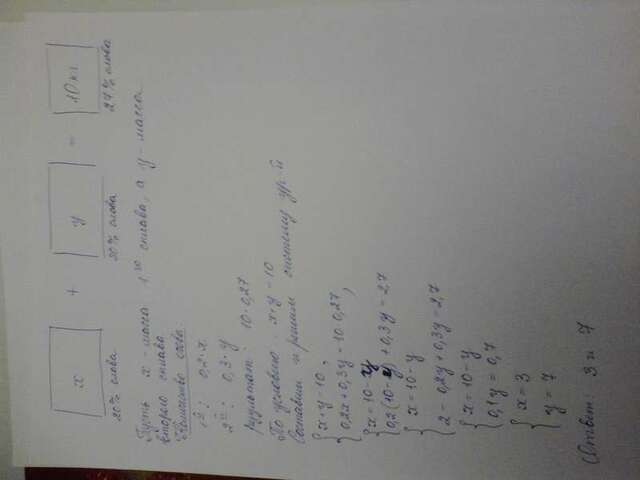 x + y = 10 кг
20% олова 30% олова 27% олова
Пусть x - масса 1го сплава, а y - масса
второго сплава
олова:
1й: 0,2·x
2й: 0,3·y
результат: 10·0,27
По условию: x+y=10
Составим и решим систему ур-й
{ x+y=10,
0,2x+0,3y=10·0,27,
{ x=10-y
0,2(10-y)+0,3y=2,7
{ x=10-y
2-0,2y+0,3y=2,7
{ x=10-y
0,1y=0,7
{ x=3
y=7
Ответ: 3 и 7